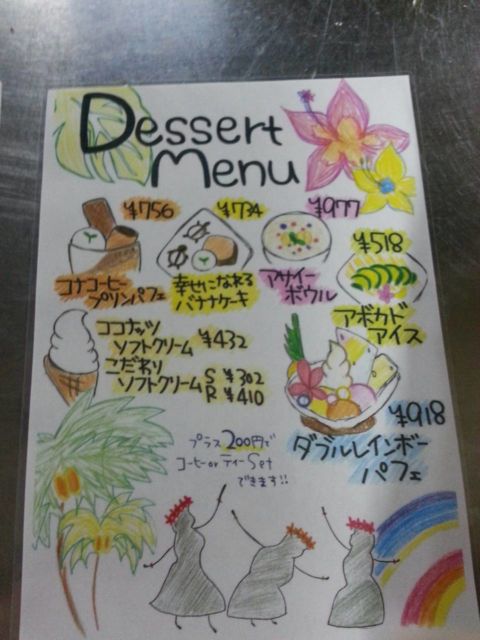 Dessert
Menu
¥756
コナコーヒー
プリンパフェ
¥734
幸せになれる
バナナケーキ
¥977
アサイー
ボウル
¥518
アボカド
アイス
ココナッツ
ソフトクリーム ¥432
こだわり
ソフトクリーム S ¥302
R ¥410
¥918
ダブルレインボー
パフェ
プラス200円で
コーヒー or ティー Set
できます!!